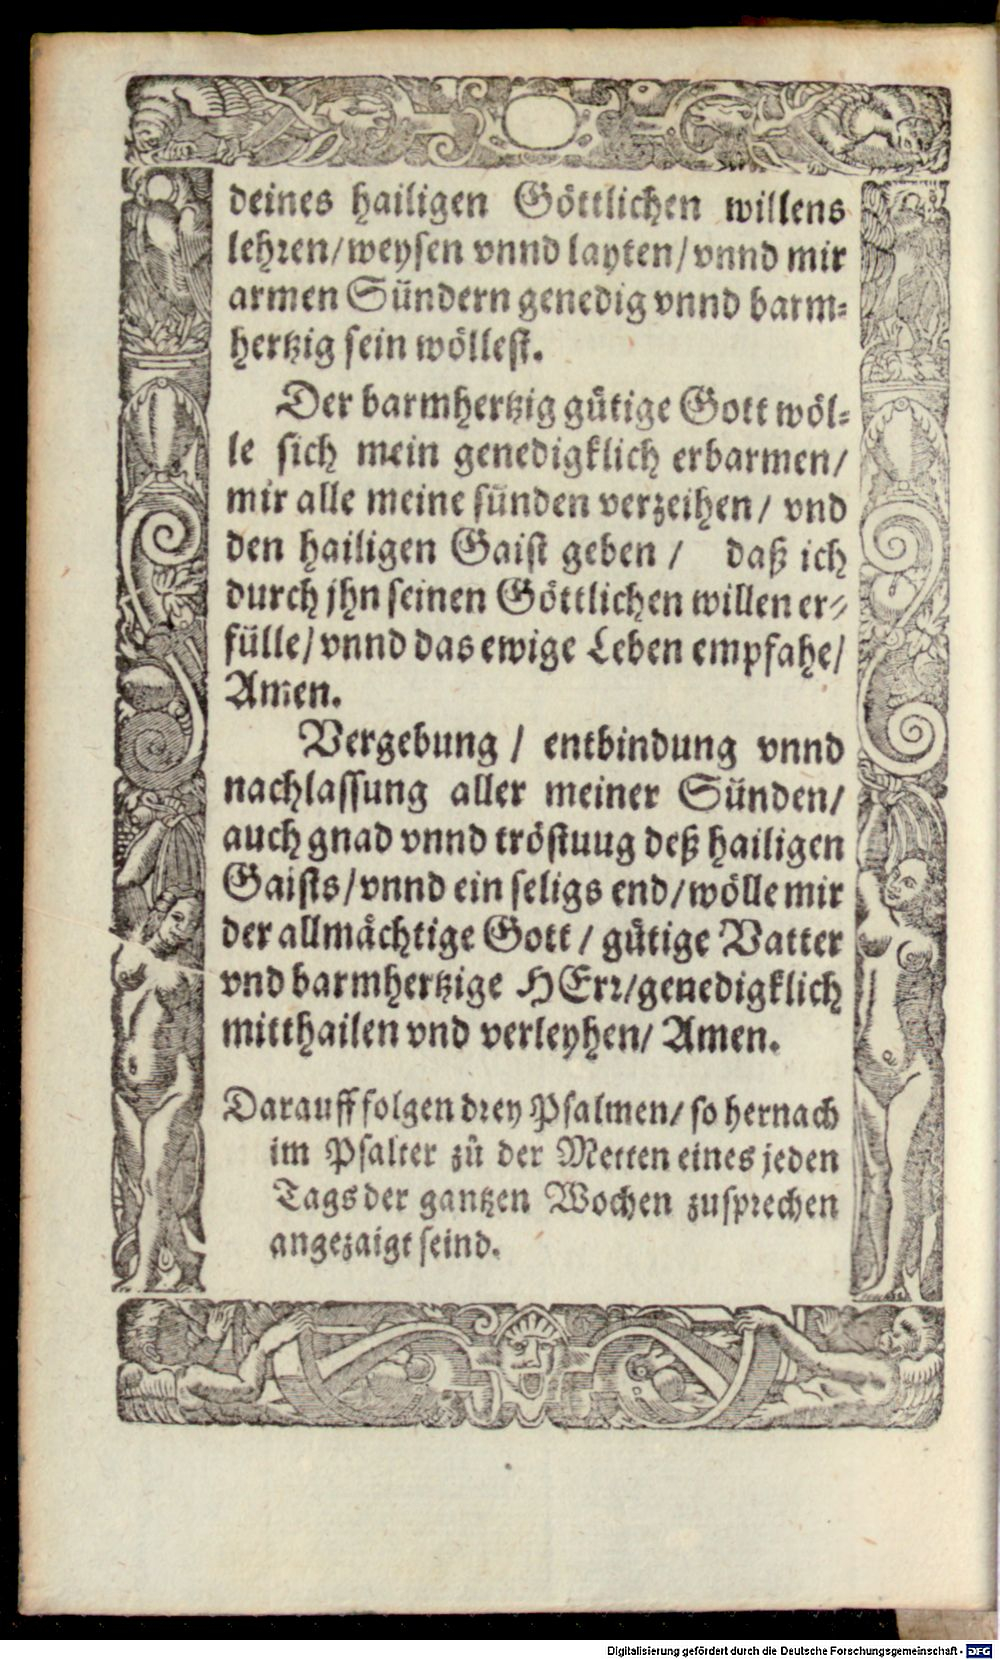 deines hailigen Göttlichen willens
lehren/weysen vnnd layten/vnnd mir
armen Sündern genedig vnnd barm⸗
hertzig sein wöllest.
Der barmhertzig gütige Gott wöl⸗
le sich mein genedigklich erbarmen/
mir alle meine sünden verzeihen/ vnd
den hailigen Gaist geben / daß ich
durch jhn seinen Göttlichen willen er⸗
fülle/vnnd das ewige Leben empfahe/
Amen.
Vergebung / entbindung vnnd
nachlassung aller meiner Sünden/
auch gnad vnnd tröstuug deß hailigen
Gaists/vnnd ein seligs end/wölle mir
der allmächtige Gott / gütige Vatter
vnd barmhertzige HErr/genedigklich
mitthailen vnd verleyhen/ Amen.
Darauff folgen drey Psalmen/ so hernach
im Psalter zů der Metten eines jeden
Tags der gantzen Wochen zusprechen
angezaigt seind.
Digitalisierung gefördert durch die Deutsche Forschungsgemeinschaft - DFG